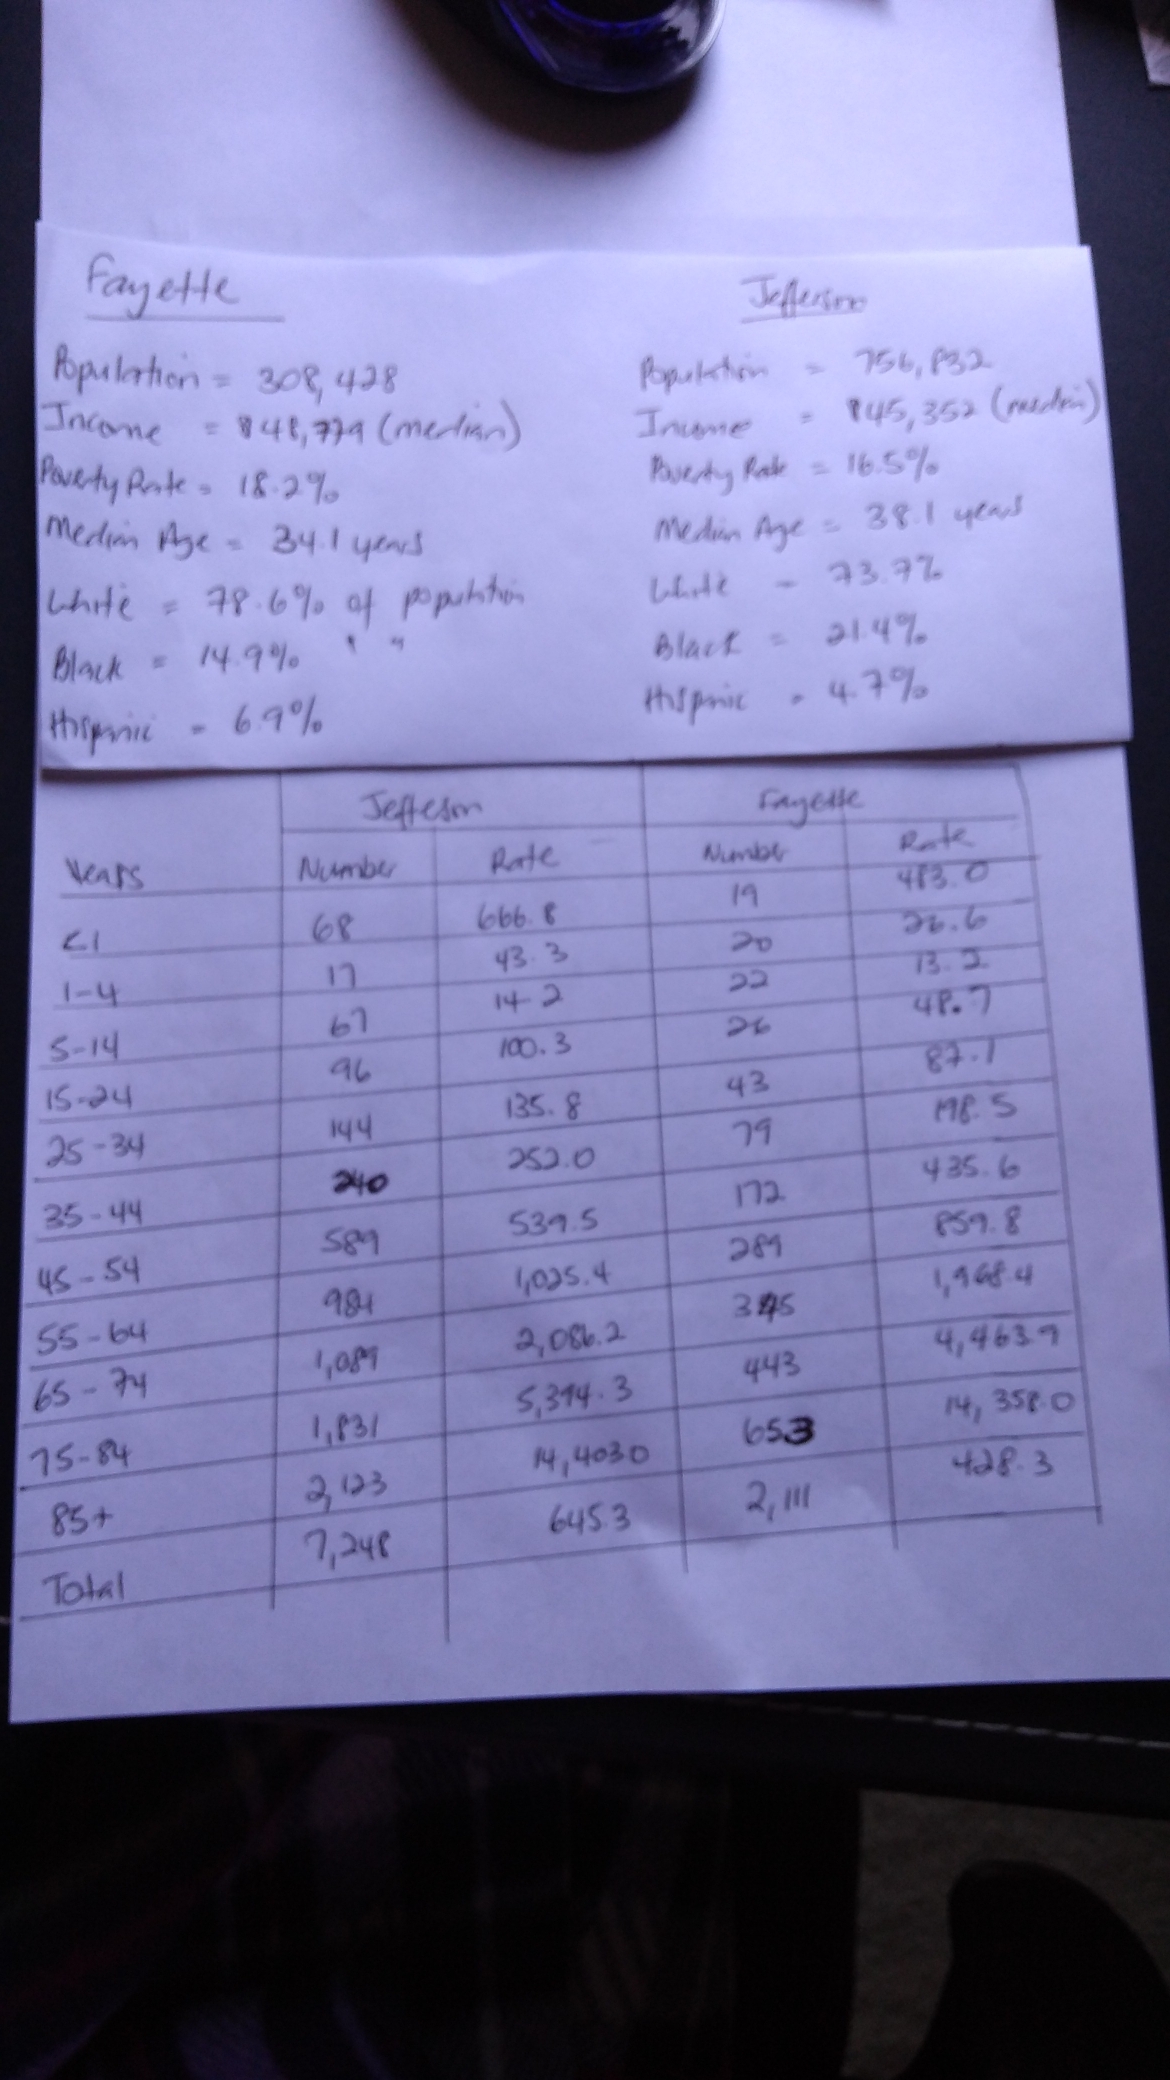 Fayette
Population = 308,428
Income = $48,779 (median)
Poverty Rate = 18.2%
Median Age = 34.1 years
White = 78.6% of population
Black = 14.9% " "
Hispanic = 6.9%
Jefferson
Population = 756,832
Income = $45,352 (median)
Poverty Rate = 16.5%
Median Age = 38.1 years
White = 73.7%
Black = 21.4%
Hispanic = 4.7%
Jefferson Fayette
Years Number Rate Number Rate
<1 68 666.8 19 483.0
1-4 17 43.3 20 26.6
5-14 67 14.2 22 13.2
15-24 96 100.3 26 48.7
25-34 144 135.8 43 87.1
35-44 240 252.0 79 198.5
45-54 589 539.5 172 435.6
55-64 984 1,025.4 289 859.8
65-74 1,089 2,086.2 345 1,968.4
75-84 1,831 5,394.3 443 4,463.9
85+ 2,123 14,403.0 653 14,358.0
Total 7,248 645.3 2,111 428.3